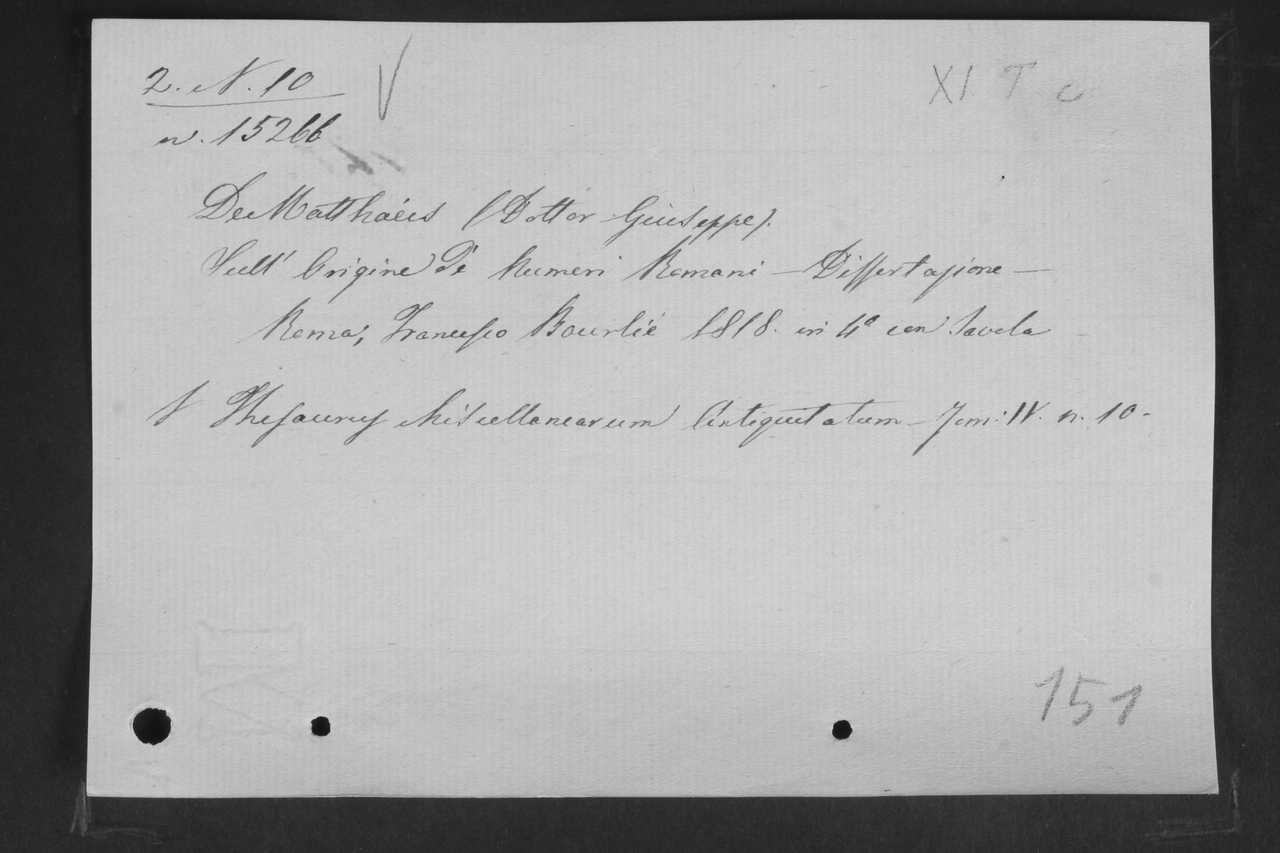 2. N. 10
V
XI T c
n. 15266
De Matthaéis (Dottor Giuseppe).
Sull' Origine de' Numeri Romani — Dissertazione —
Roma, Francesco Bourlié 1818. in 4º con tavola
V Thesaurus Miscellanearum Antiquitatum — Tom: IV. n. 10 -
151